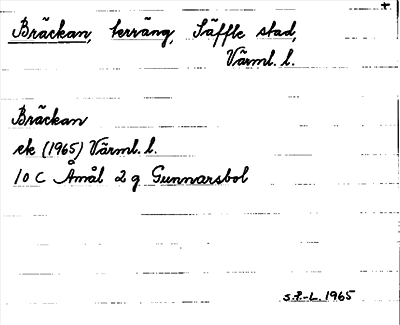 +
Bräckan, terräng, Säffle stad,
Värml. l.
Bräckan
ek (1965) Värml. l.
10 C Åmål 2 g Gunnarsbol
S.F.-L. 1965